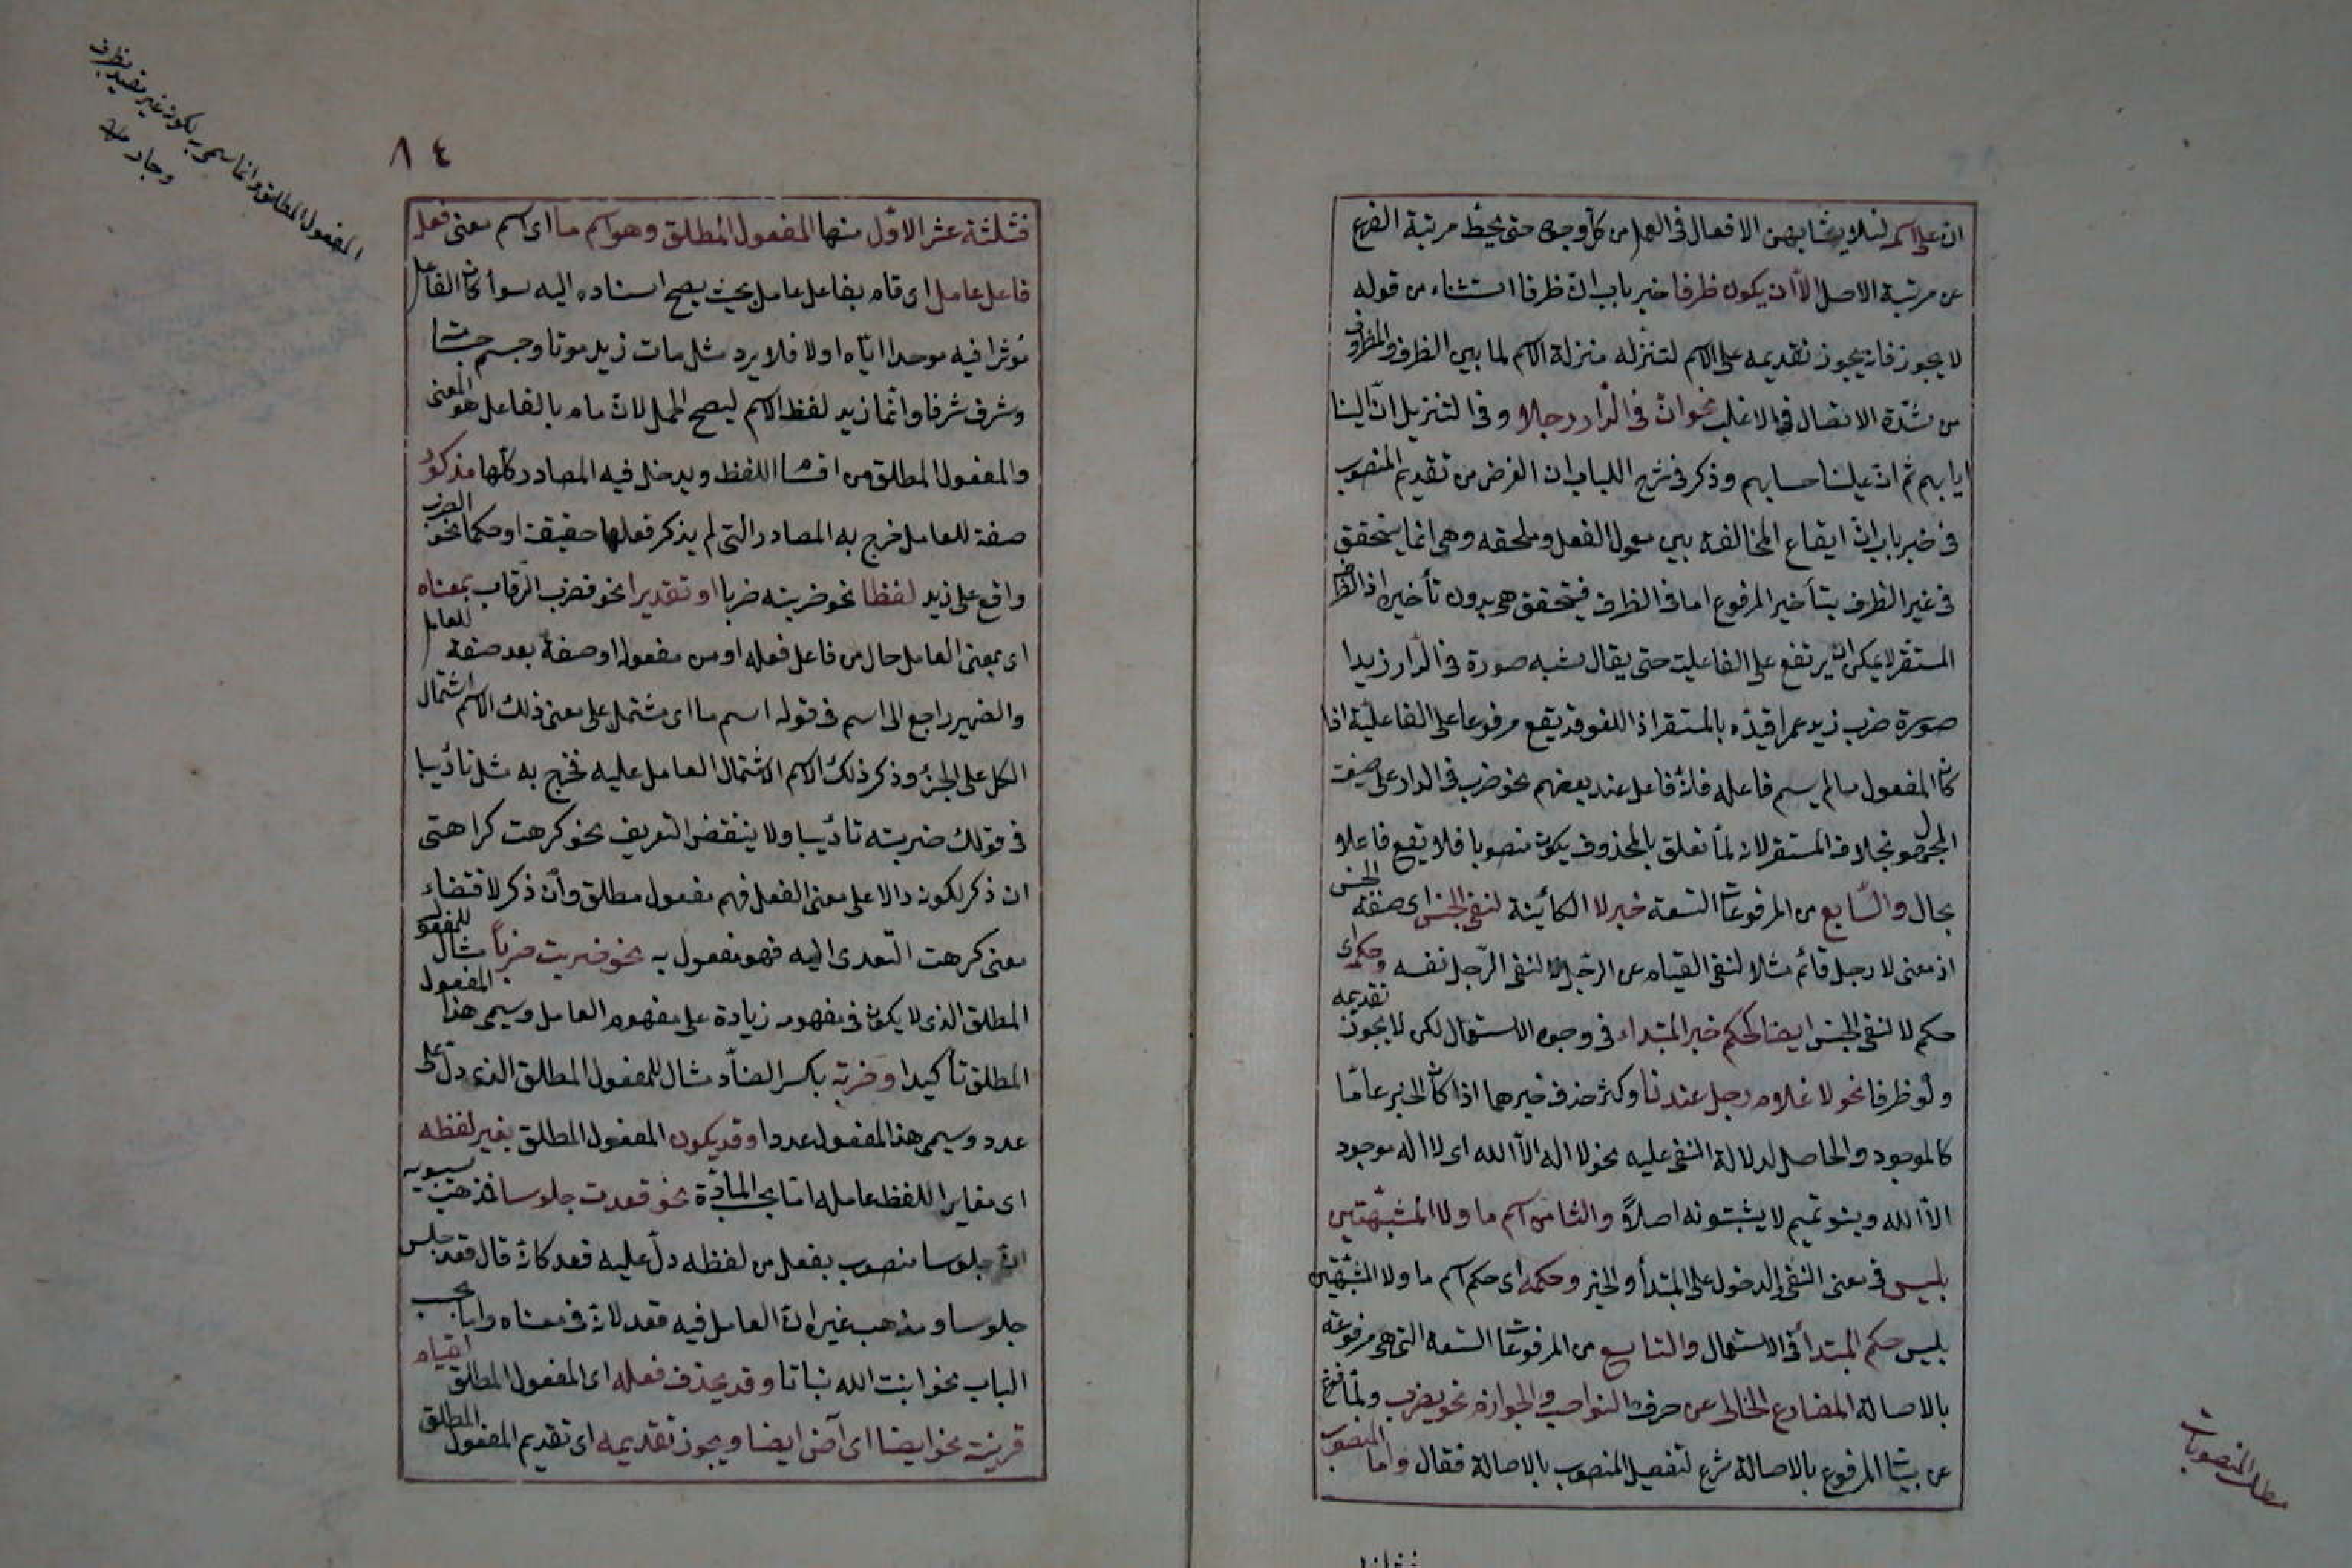 ان على اسم لئلا يشابهن الافعال فى العمل من كل وجوه حتى يحط مرتبة الفرع
عن مرتبة الاصل الا ان يكون ظرفا خبر باب ان ظرفا استثناء من قوله
لا يجوز فانه يجوز تقديمه على الاسم لتنزله منزلة الاسم لما بين الظرف والمظروف
من شدة الاتصال فى الاغلب نحو ان فى الدار رجلا وفى التنزيل ان الينا
ايابهم ثم ان علينا حسابهم وذكر فى شرح اللباب ان الغرض من تقديم المنصوب
فى خبر باب ان ايقاع المخالفة بين معمول الفعل وملحقه وهى انما يتحقق
فى غير الظرف بتأخير المرفوع اما فى الظرف فيتحقق هى بدون تأخيره اذ الظرف
المستقر لا يمكن ان يرتفع على الفاعلية حتى يقال يشبه صورة فى الدار زيدا
صورة ضرب زيد عمرا قيده بالمستقر اذ اللغو قد يقع مرفوعا على الفاعلية اذا
كان المفعول ما لم يسم فاعله فانه فاعل عند بعضهم نحو ضرب فى الدار على صيغة
المجهول بخلاف المستقر لانه لما تعلق بالمحذوف يكون منصوبا فلا يقع فاعلا
بحال والسابع من المرفوعات التسعة خبر لا الكائنة لنفى الجنس اى صفة الجنس
اذ معنى لا رجل قائم مثلا لنفى القيام عن الرجل لا لنفى الرجل نفسه وحكمه اى
حكم لا لنفى الجنس ايضا كحكم خبر المبتداء فى وجوه الاستعمال لكن لا يجوز تقديمه
ولو ظرفا نحو لا غلام رجل عندنا وكثر حذف خبرهما اذا كان الخبر عاما
كالموجود والحاصل لدلالة النفى عليه نحو لا اله الا الله اى لا اله موجود
الا الله وبنو تميم لا يثبتونه اصلا والثامن اسم ما ولا المشبهتين
بليس فى معنى النفى والدخول على المبتدأ والخبر وحكمه اى حكم اسم ما ولا المشبهتين
بليس حكم المبتدأ فى الاستعمال والتاسع من المرفوعات التسعة التى هى مرفوعة
بالاصالة المضارع الخالى عن حرف النواصب والجوازم نحو يضرب ولما فرغ
عن بيان المرفوع بالاصالة شرع لتفصيل المنصوب بالاصالة فقال واما المنصوب
مطلب المنصوبات
٨٤
فثلثة عشر الاول منها المفعول المطلق وهو اسم ما اى اسم معنى فعله
فاعل عامل اى قام بفاعل عامل بحيث يصح اسناده اليه سواء كان الفاعل
مؤثرا فيه موجدا اياه اولا فلا يرد مثل مات زيد موتا وجسم جسامة
وشرف شرفا وانما زيد لفظ الاسم ليصح الحمل لان ما قام بالفاعل هو المعنى
والمفعول المطلق من اقسام اللفظ ويدخل فيه المصادر كلها مذكور
صفة للعامل خرج به المصادر التى لم يذكر فعلها حقيقة او حكما نحو الضرب
واقع على زيد لفظا نحو ضربته ضربا او تقديرا نحو فضرب الرقاب بمعناه
اى بمعنى العامل حال من فاعل فعله او من مفعوله او صفة بعد صفة للعامل
والضمير راجع الى اسم فى قوله اسم ما اى مشتمل على معنى ذلك الاسم اشتمال
الكل على الجزء وذكر ذلك الاسم لاشتمال العامل عليه فخرج به مثل تأديبا
فى قولك ضربته تأديبا ولا ينتقض التعريف بنحو كرهت كراهتى
ان ذكر لكونه دالا على معنى الفعل فهم مفعول مطلق وان ذكر لاقتضاء
معنى كرهت التعدى اليه فهو مفعول به نحو ضربت ضربا مثال للمفعول
المطلق الذى لا يكون فى مفهومه زيادة على مفهوم العامل ويسمى هذا المفعول
المطلق تأكيدا وضربة بكسر الضاد مثال للمفعول المطلق الذى دل على
عدد ويسمى هذا المفعول عددا وقد يكون المفعول المطلق بغير لفظه
اى مغايرا للفظ عامله اما بحسب المادة نحو قعدت جلوسا فذهب سيبويه
ان جلوسا منصوب بفعل من لفظه دل عليه قعد كانه قال قعد جلس
جلوسا ومذهب غيره ان العامل فيه قعد لانه فى معناه واما بحسب
الباب نحو انبت الله نباتا وقد يحذف فعله اى المفعول المطلق لقيام
قرينة نحو ايضا اى آض ايضا ويجوز تقديمه اى تقديم المفعول المطلق
المفعول المطلق وانما سمى به لكونه غير مقيد بظرف
وجار